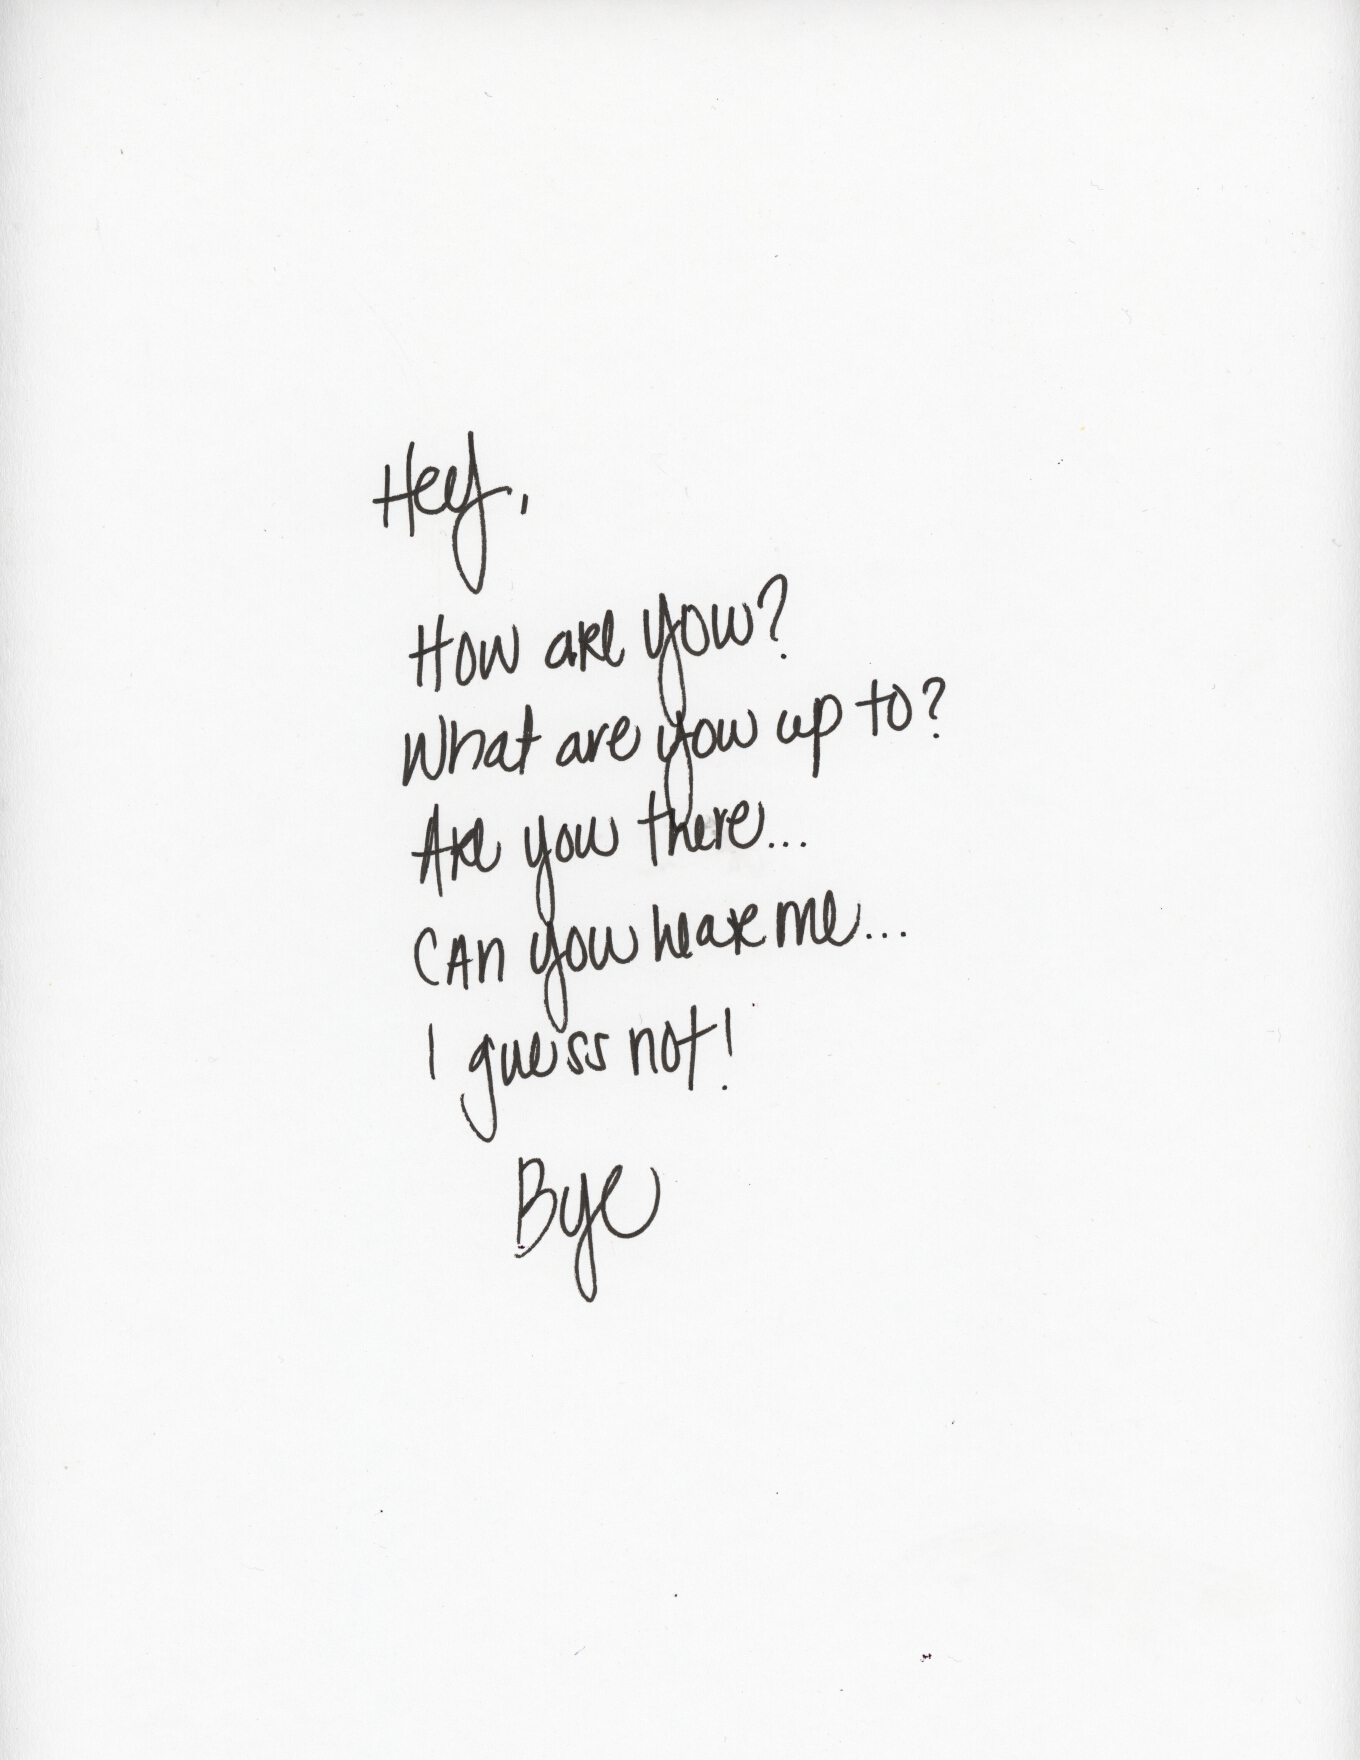 Hey,
How are you?
What are you up to?
Are you there...
Can you hear me...
I guess not!
Bye